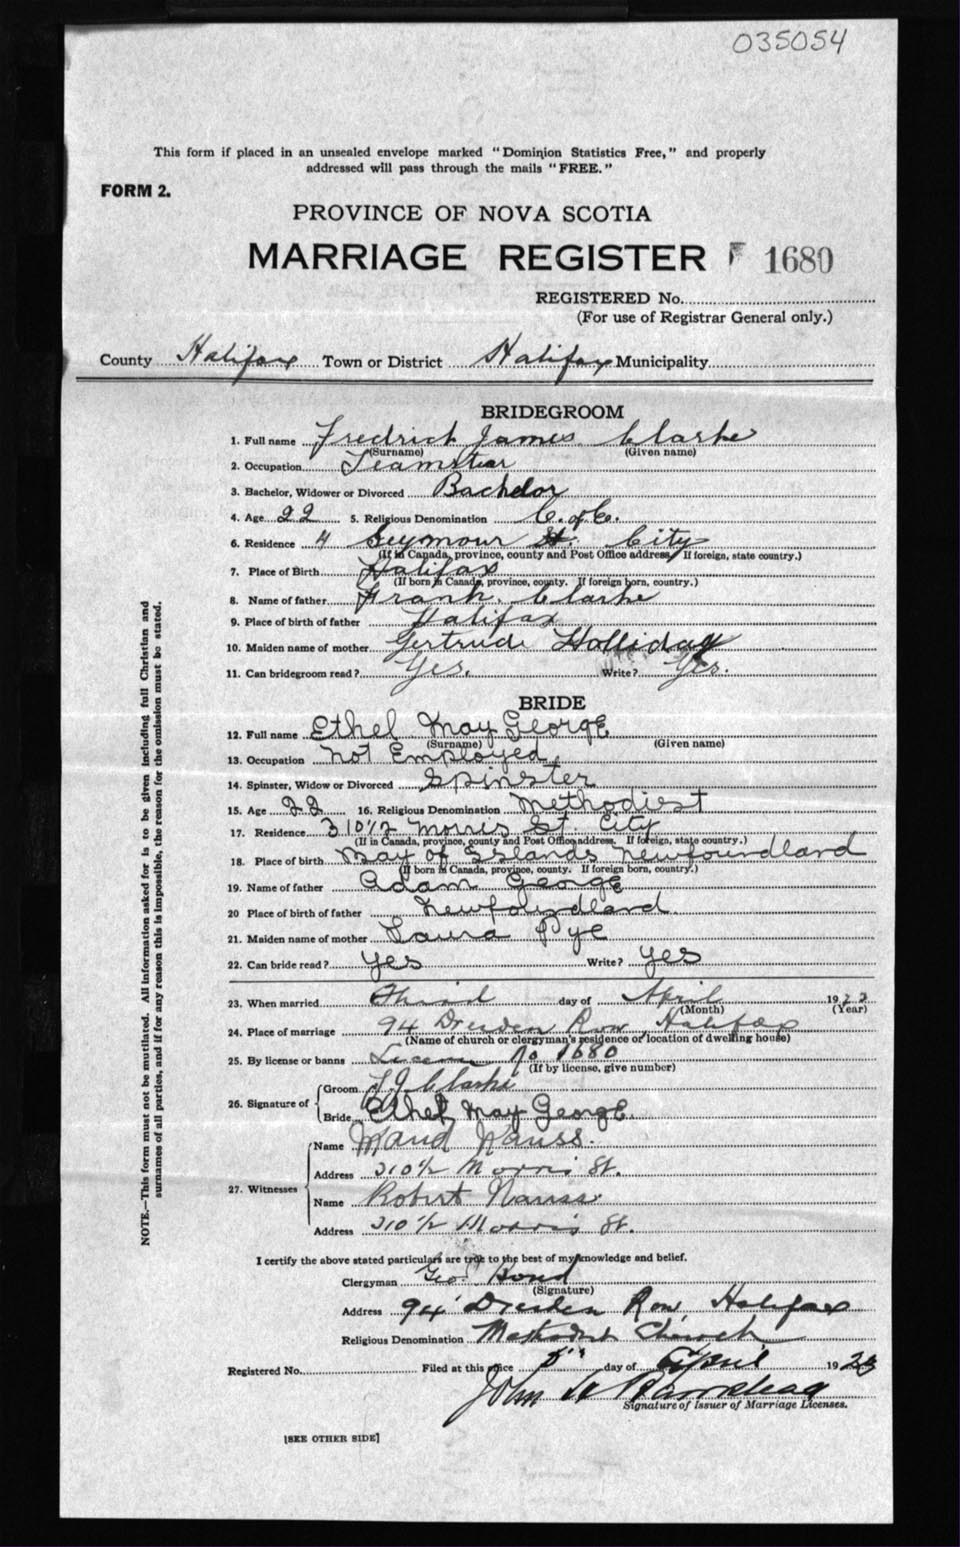 035054
This form if placed in an unsealed envelope marked "Dominion Statistics Free," and properly
addressed will pass through the mails "FREE."
FORM 2.
PROVINCE OF NOVA SCOTIA
MARRIAGE REGISTER F 1680
REGISTERED No.
(For use of Registrar General only.)
County Halifax Town or District Halifax Municipality
BRIDEGROOM
1. Full name Fredrick James Clarke
(Surname) (Given name)
2. Occupation Teamster
3. Bachelor, Widower or Divorced Bachelor
4. Age 22 5. Religious Denomination C. of E.
6. Residence 4 Seymour St. City
(If in Canada, province, county and Post Office address, If foreign, state country.)
7. Place of Birth Halifax
(If born in Canada, province, county. If foreign born, country.)
8. Name of father Frank. Clarke
9. Place of birth of father Halifax
10. Maiden name of mother Gertrude Holliday
11. Can bridegroom read? Yes. Write? Yes.
BRIDE
12. Full name Ethel May George
(Surname) (Given name)
13. Occupation Not Employed.
14. Spinster, Widow or Divorced Spinster
15. Age 22 16. Religious Denomination Methodist
17. Residence 310½ Morris St. City
(If in Canada, province, county and Post Office address. If foreign, state country.)
18. Place of birth Bay of Islands Newfoundland
(If born in Canada, province, county. If foreign born, country.)
19. Name of father Adam George
20 Place of birth of father Newfoundland.
21. Maiden name of mother Laura Pye
22. Can bride read? yes Write? yes
23. When married Third day of April 1923
(Month) (Year)
24. Place of marriage 94 Dresden Row, Halifax
(Name of church or clergyman's residence or location of dwelling house)
25. By license or banns License No 1680
(If by license, give number)
26. Signature of
Groom F J Clarke
Bride Ethel May George.
27. Witnesses
Name Maud Nauss.
Address 310½ Morris St.
Name Robert Nauss
Address 310½ Morris St.
I certify the above stated particulars are true to the best of my knowledge and belief.
Clergyman Geo. Bond
(Signature)
Address 94 Dresden Row, Halifax
Religious Denomination Methodist Church
Registered No. Filed at this office day of April 1923
John
Signature of Issuer of Marriage Licenses.
[SEE OTHER SIDE]
NOTE.—This form must not be mutilated. All information asked for is to be given including full Christian and
surnames of all parties, and if for any reason this is impossible, the reason for the omission must be stated.